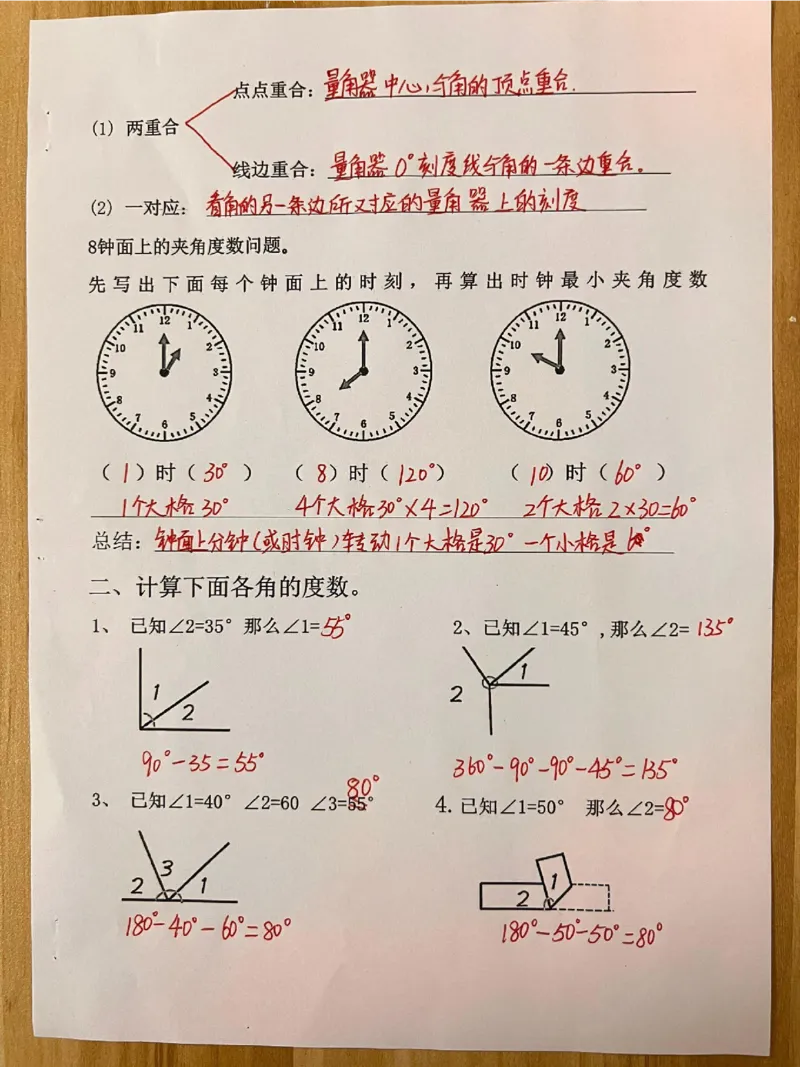 点点重合：量角器中心与角的顶点重合.
(1) 两重合
线边重合：量角器0°刻度线与角的一条边重合。
(2) 一对应：看角的另一条边所对应的量角器上的刻度
8钟面上的夹角度数问题。
先写出下面每个钟面上的时刻，再算出时钟最小夹角度数
12 1 2 3 4 5 6 7 8 9 10 11
12 1 2 3 4 5 6 7 8 9 10 11
12 1 2 3 4 5 6 7 8 9 10 11
（1）时（30°） （8）时（120°） （10）时（60°）
1个大格30° 4个大格30°×4=120° 2个大格2×30=60°
总结：钟面上分钟(或时钟)转动1个大格是30° 一个小格是6°
二、计算下面各角的度数。
1、 已知∠2=35° 那么∠1=55° 2、已知∠1=45° ,那么∠2= 135°
1 2 2 1
90°-35=55° 360°-90°-90°-45°=135°
80°
3、 已知∠1=40° ∠2=60 ∠3=55° 4.已知∠1=50° 那么∠2=80°
2 3 1 2 1
180°-40°-60°=80° 180°-50°-50°=80°